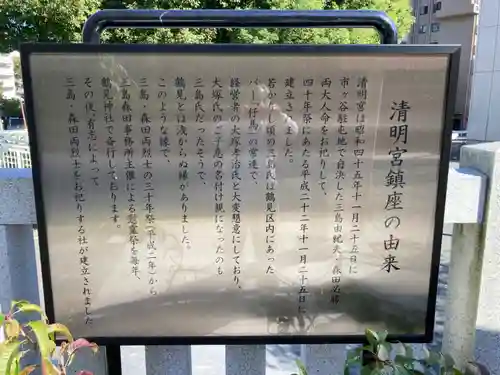 清明宮鎮座の由来
清明宮は昭和四十五年十一月二十五日に
市ヶ谷駐屯地で自決した三島由紀夫、森田必勝
両大人命をお祀りして、
四十年祭にあたる平成二十二年十一月二十五日に
建立されました。
若かりし頃の三島氏は鶴見区内にあった
バー「仔馬」の常連で、
経営者の大塚孝治氏と大変懇意にしており、
大塚氏のご子息の名付け親になったのも
三島氏だったそうで、
鶴見とは浅からぬ縁がありました。
このような縁で、
三島・森田両烈士の三十年祭(平成二年)から
三島森田事務所主催による慰霊祭を毎年、
鶴見神社で斎行しております。
その後、有志によって
三島・森田両烈士をお祀りする社が建立されました